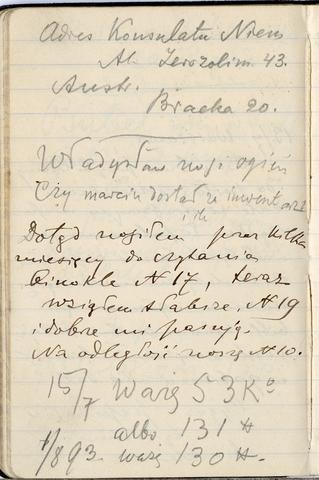 Adres Konsulatu Niem
Al. Jerozolim. 43.
Austr.
Bracka 20.
Władysław nogi ogień
Czy marcin dostał ze inwentarza
i ile
Dotąd nosiłem przez kilka
miesięcy do czytania
binokle N 17, teraz
wziąłem słabsze, N 19
i dobrze mi pasują.
Na odległość noszę N 10.
15/7 ważę 53 Ko
albo 131 ℔
1/893. ważę 130 ℔.